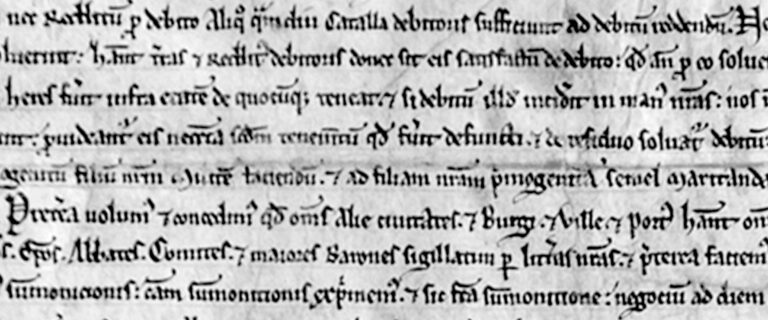 nec Redditū p debito Aliqͦ q̄mdiu Catalla debitoris sufficiunt ad debitū reddendū. Ne
luerint: hānt t̄ras ⁊ Reddit' debitoris donec sit eis satisfactū de debito: qd̄ añ p eo solue
heres fūit infra etatē de quocūq; teneat. ⁊ si debitū illd̄ incidit in man' nr̄as: nos n
prouideant' eis necc̄ria scdm̄ tenem̄tū qd̄ fūit defuncti. ⁊ de residuo soluat' debitū
genitū filiū nr̄m militē faciendū. ⁊ ad filiam nr̄am p'mogenitā semel maritandā
Pret'ea volum' ⁊ concedim' qd̄ om̄s alie ciuitates. ⁊ Burgi. ⁊ Ville. ⁊ Port' hāant om̄
s. Ep̄os. Abbates. Comites. ⁊ maiores Barones sigillatim p litt'as nr̄as. ⁊ p't'ea faciem'
sūmonicionis: cām sūmonicionis exp'mem'. ⁊ sic fc̄a sūmonicione: negociū ad diem